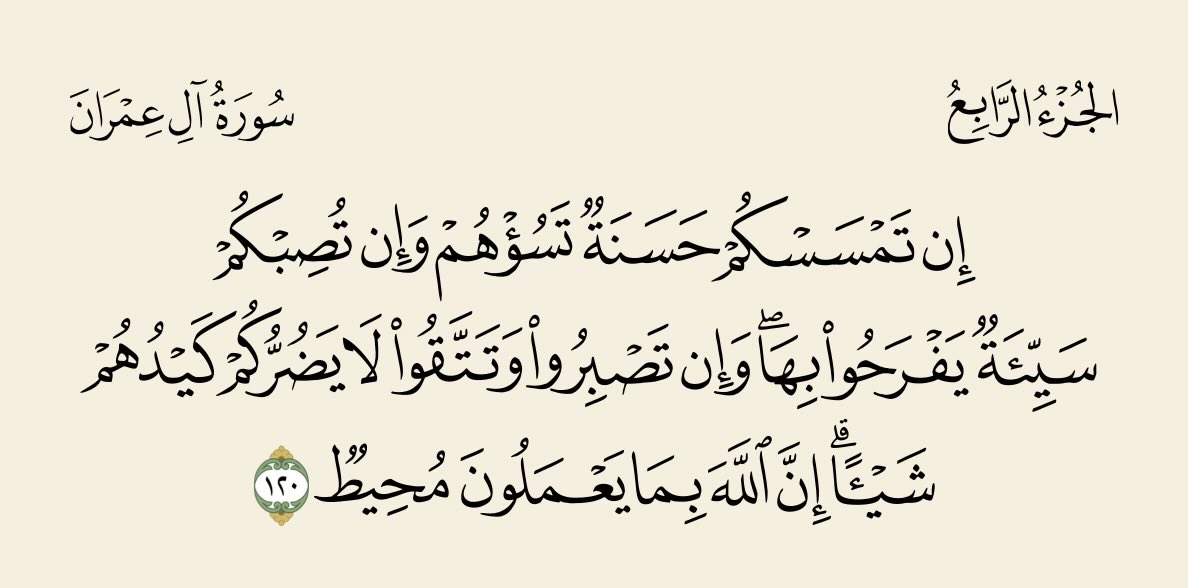 الجُزْءُ الرَّابِعُ
سُورَةُ آلِ عِمْرَانَ
إِن تَمْسَسْكُمْ حَسَنَةٌ تَسُؤْهُمْ وَإِن تُصِبْكُمْ
سَيِّئَةٌ يَفْرَحُوا۟ بِهَا ۖ وَإِن تَصْبِرُوا۟ وَتَتَّقُوا۟ لَا يَضُرُّكُمْ كَيْدُهُمْ
شَيْـًٔا ۗ إِنَّ ٱللَّهَ بِمَا يَعْمَلُونَ مُحِيطٌ ١٢٠